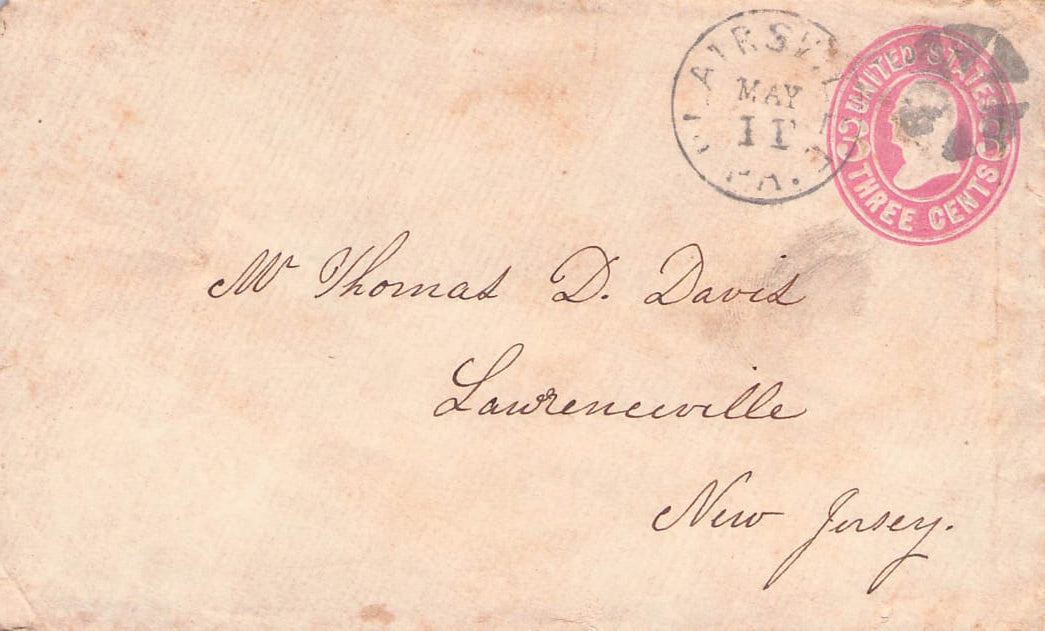 MAY
11
PA.
UNITED STATES
3 3
THREE CENTS
Mr Thomas D. Davis
Lawrenceville
New Jersey.